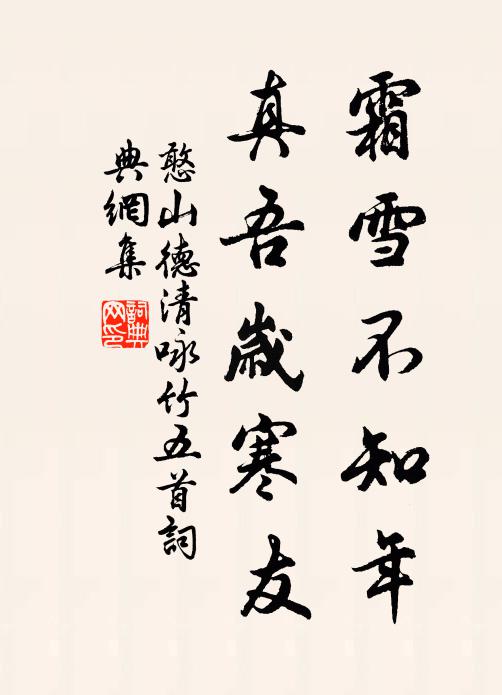 霜雪不知年
真吾歲寒友
憨山德清咏竹五首詞
典網集
詞典
网印